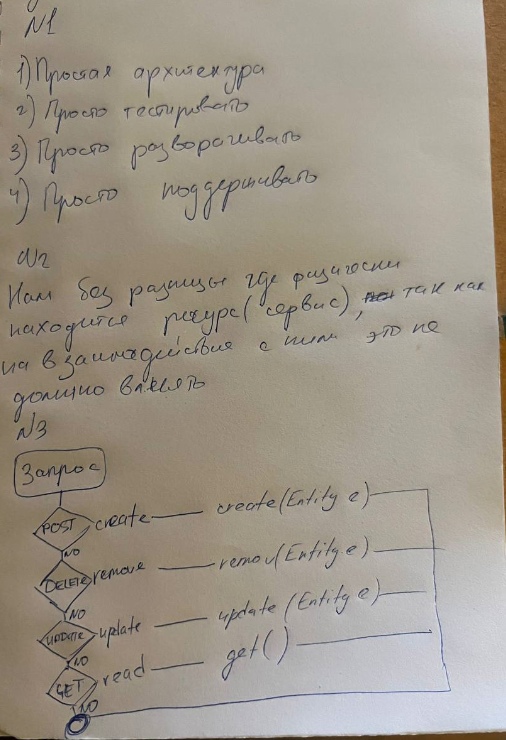 N1
1) Простая архитектура
2) Просто тестировать
3) Просто разворачивать
4) Просто поддерживать
N2
Нам без разницы где физически
находится ресурс (сервис), так как
на взаимодействие с ним это не
должно влиять
N3
Запрос
POST create create(Entity e)
NO
DELETE remove remov(Entity e)
NO
UPDATE update update (Entity e)
NO
GET read get()
NO